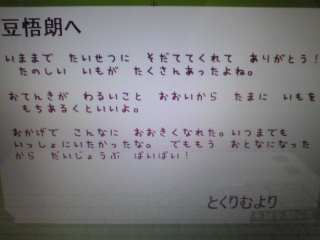 豆悟朗へ
いままで たいせつに そだててくれて ありがとう!
たのしい いもが たくさんあったよね。
おてんきが わるいこと おおいから たまに いもを
もちあるくといいよ。
おかげで こんなに おおきくなれた。いつまでも
いっしょにいたかったな。 でももう おとなになった
から だいじょうぶ ばいばい!
とくりむより